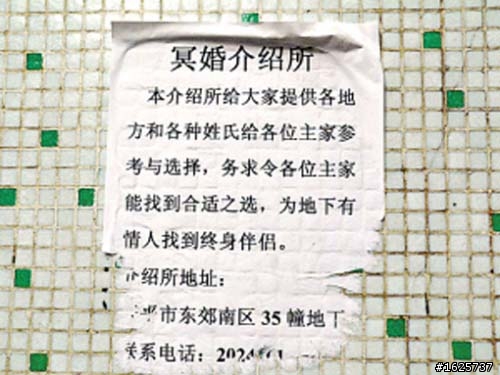 冥婚介绍所
本介绍所给大家提供各地
方和各种姓氏给各位主家参
考与选择，务求令各位主家
能找到合适之选，为地下有
情人找到终身伴侣。
介绍所地址：
市东郊南区 35 幢地下
关系电话：2024
#1625737